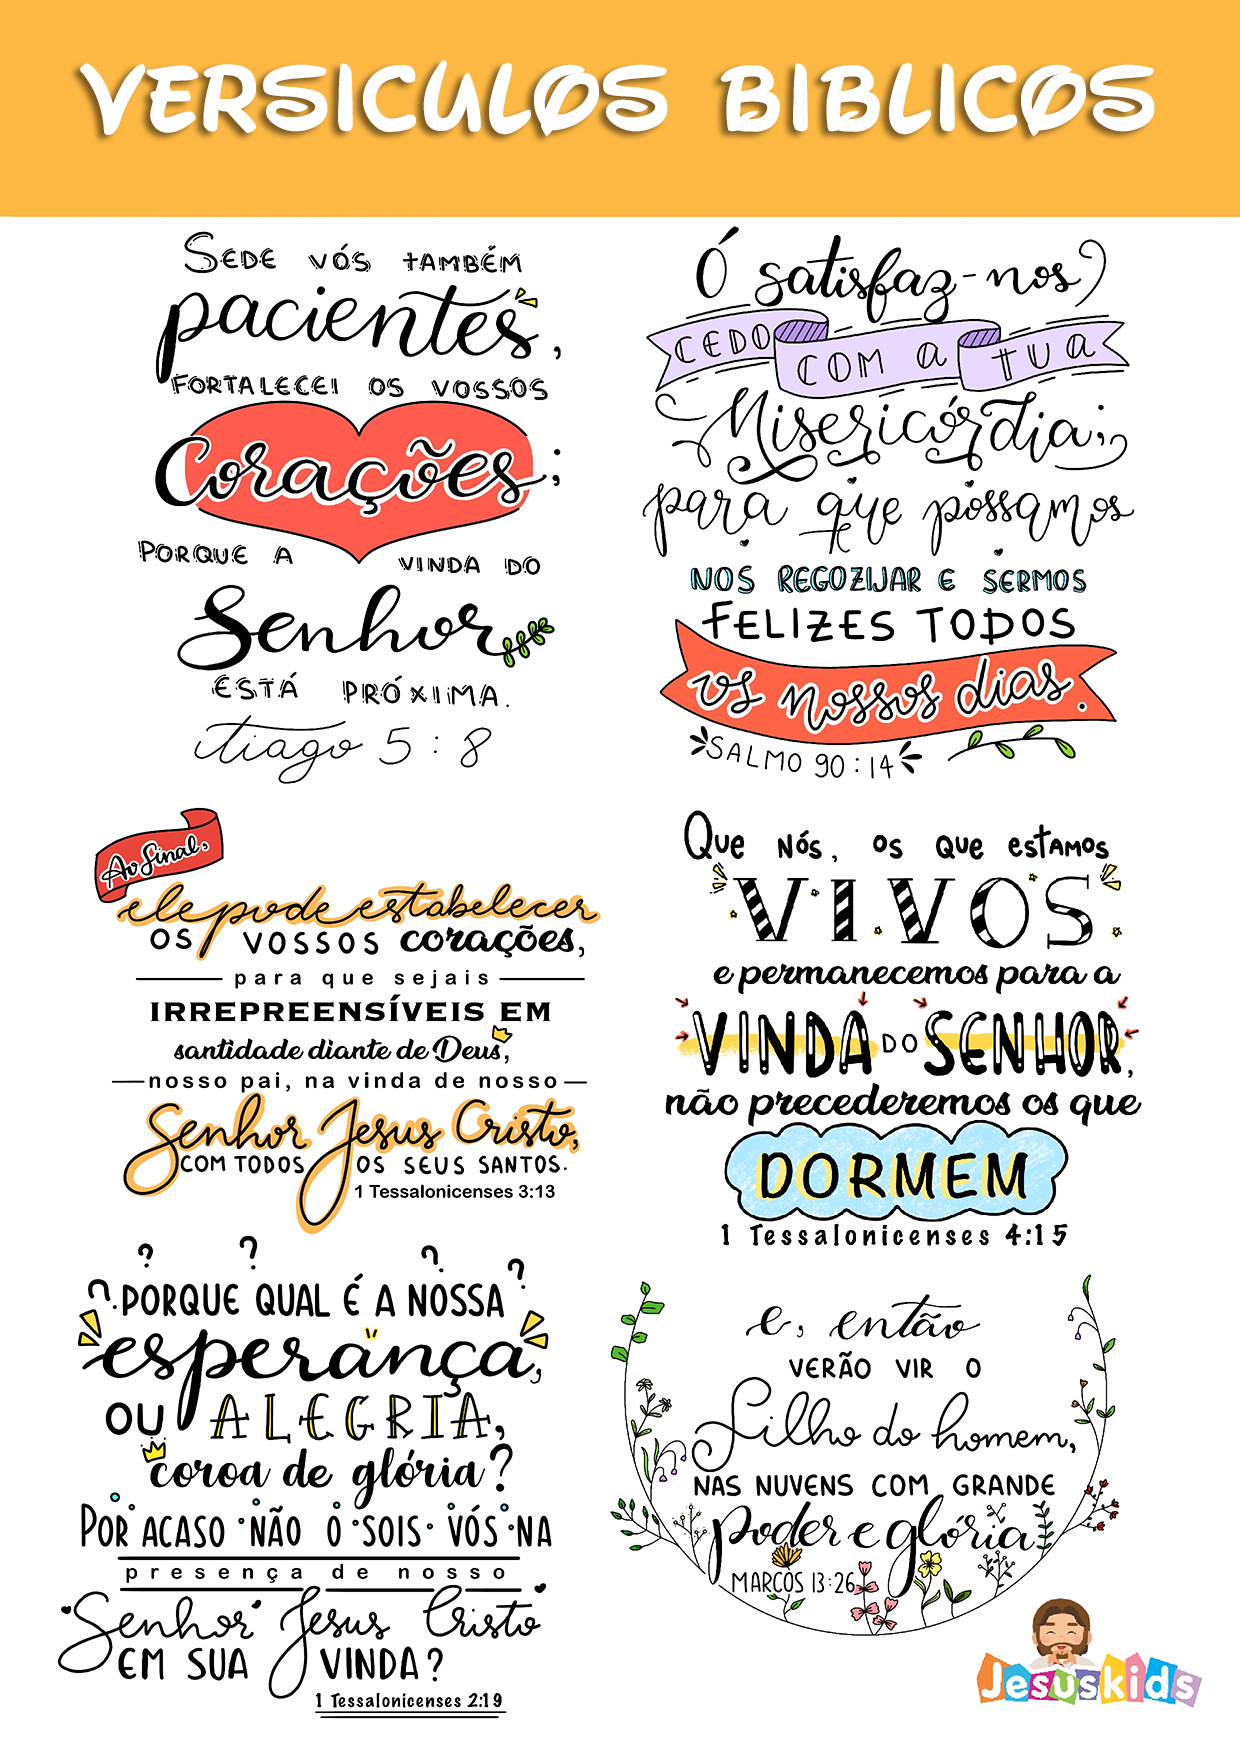 VERSICULOS BIBLICOS
SEDE VÓS TAMBÉM
pacientes,
FORTALECEI OS VOSSOS
Corações;
PORQUE A VINDA DO
Senhor
ESTÁ PRÓXIMA.
tiago 5:8
Ó satisfaz-nos
CEDO COM A TUA
Misericórdia;
para que possamos
NOS REGOZIJAR E SERMOS
FELIZES TODOS
os nossos dias.
SALMO 90:14
Ao final,
ele pode estabelecer
OS VOSSOS corações,
para que sejais
IRREPREENSÍVEIS EM
santidade diante de Deus,
nosso pai, na vinda de nosso
Senhor Jesus Cristo,
COM TODOS OS SEUS SANTOS.
1 Tessalonicenses 3:13
Que nós, os que estamos
VIVOS
e permanecemos para a
VINDA DO SENHOR,
não precederemos os que
DORMEM
1 Tessalonicenses 4:15
? ? ? ?
?PORQUE QUAL É A NOSSA
esperança,
OU ALEGRIA,
coroa de glória?
POR ACASO NÃO O SOIS VÓS NA
presença de nosso
Senhor Jesus Cristo
EM SUA VINDA?
1 Tessalonicenses 2:19
e, então
VERÃO VIR O
Filho do homem,
NAS NUVENS COM GRANDE
poder e glória
MARCOS 13:26
Jesuskids